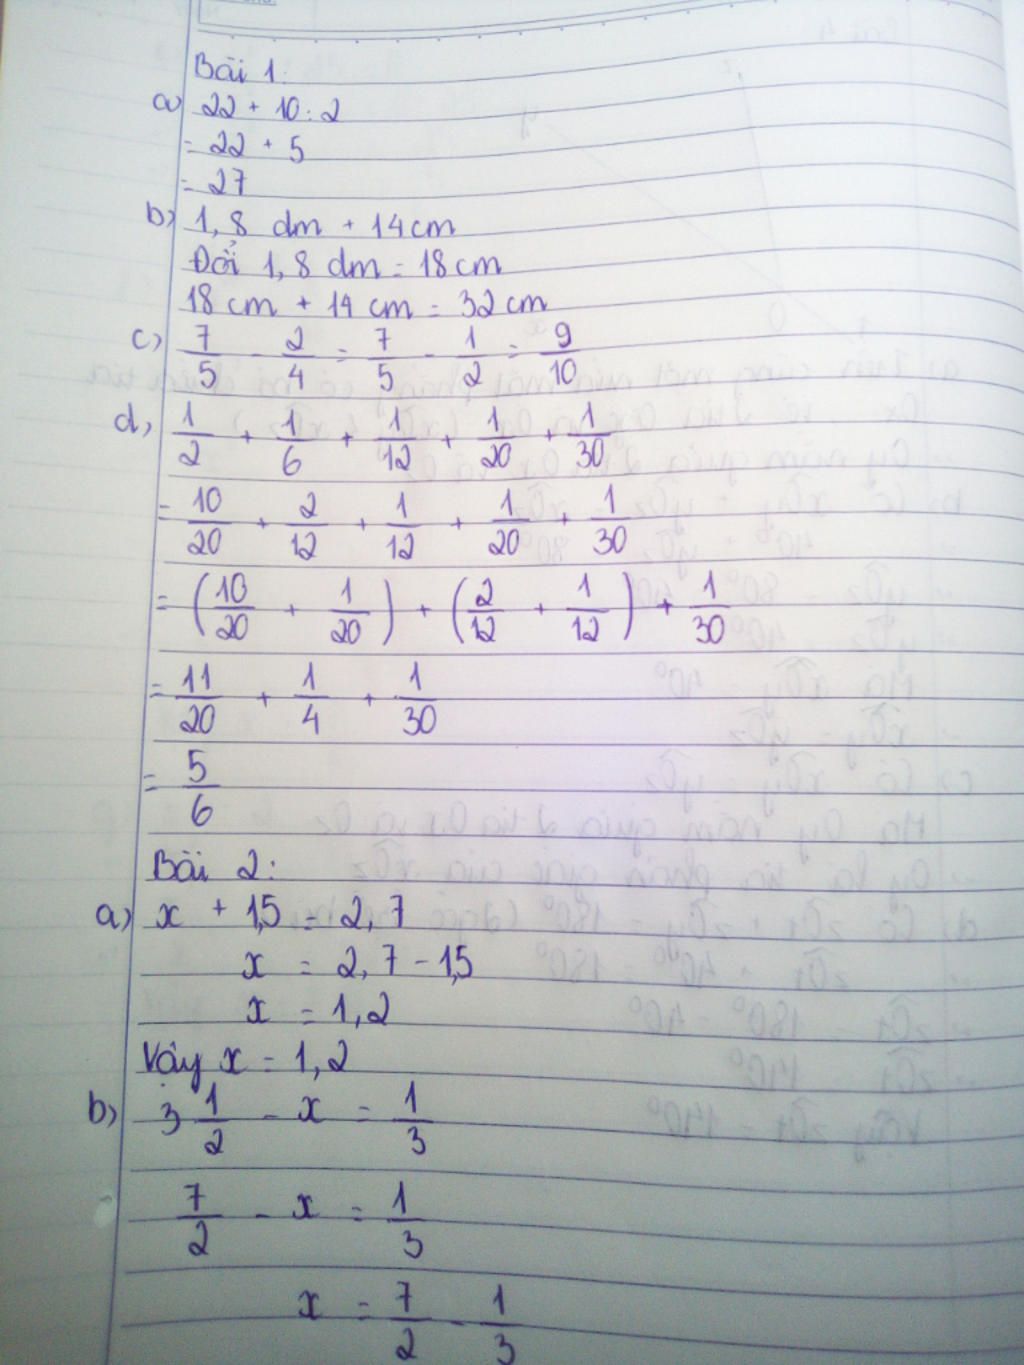 Bài 1:
a) 22 + 10 : 2
= 22 + 5
= 27
b) 1,8 dm + 14cm
Đổi 1,8 dm = 18cm
18 cm + 14 cm = 32 cm
c) 7/5 - 2/4 = 7/5 - 1/2 = 9/10
d) 1/2 + 1/6 + 1/12 + 1/20 + 1/30
= 10/20 + 2/12 + 1/12 + 1/20 + 1/30
= (10/20 + 1/20) + (2/12 + 1/12) + 1/30
= 11/20 + 1/4 + 1/30
= 5/6
Bài 2:
a) x + 1,5 = 2,7
x = 2,7 - 1,5
x = 1,2
Vậy x = 1,2
b) 3 1/2 - x = 1/3
7/2 - x = 1/3
x = 7/2 - 1/3